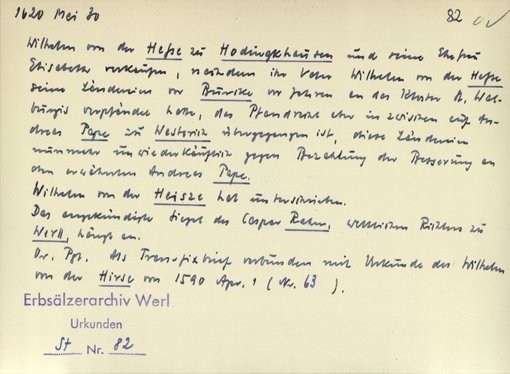 1620 Mai 30
82
Wilhelm von der Hesse zu Hodingkhausen und seine Ehefrau
Elisabeth verkaufen, nachdem ihr Vater Wilhelm von der Hesse
seine Ländereien vor Büricke vor Jahren an das Kloster St. Wal-
burgis verpfändet hatte, das Pfandrecht aber inzwischen auf An-
dreas Pape zu Westerich übergegangen ist, diese Ländereien
nunmehr unwiederkäuflich gegen Bezahlung der Besserung an
den erwähnten Andreas Pape.
Wilhelm von der Heisze hat unterschrieben.
Das angekündigte Siegel des Caspar Rahm, weltlichen Richters zu
Werll, hängt an.
Or. Pgt. Als Transfixbrief verbunden mit Urkunde des Wilhelm
von der Hirse von 1590 Apr. 1 (Nr. 63).
Erbsälzerarchiv Werl
Urkunden
St Nr. 82